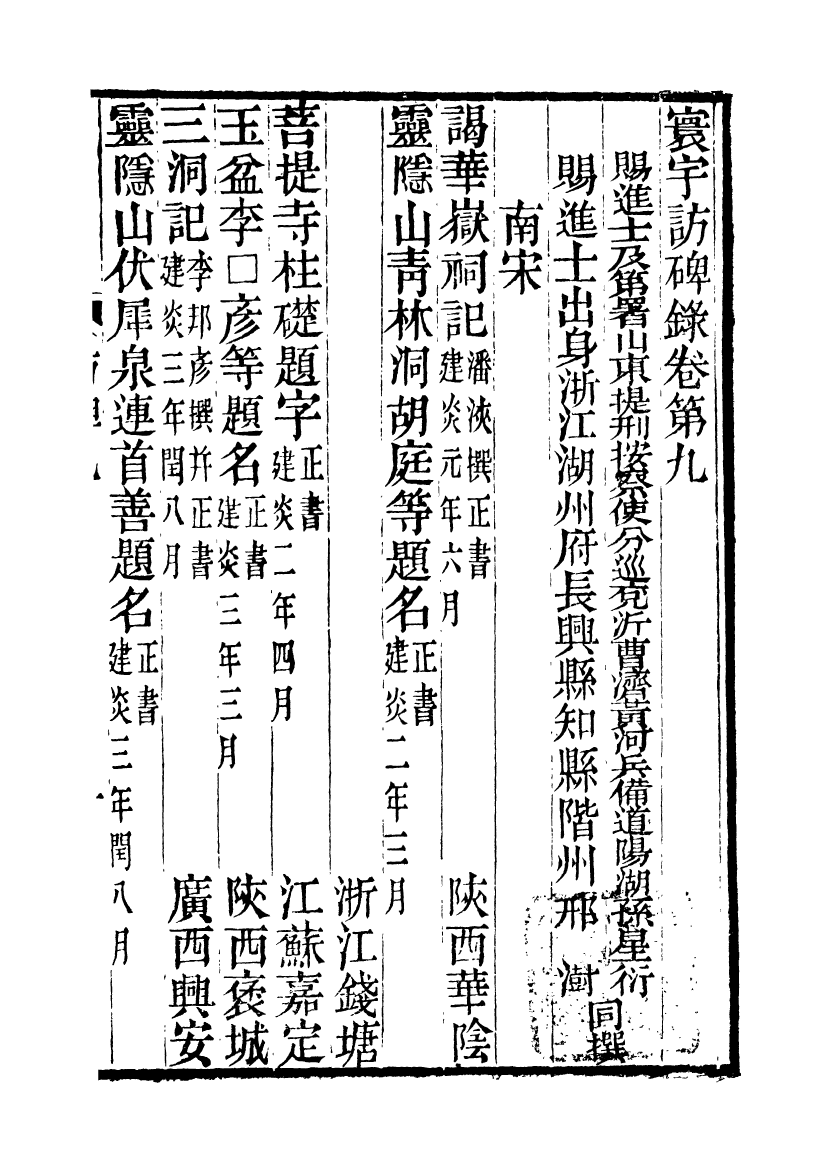 寰宇訪碑錄卷第九
賜進士及第署山東提刑按察使分巡兗沂曹濟黃河兵備道陽湖孫星衍
賜進士出身浙江湖州府長興縣知縣階州邢澍
同撰
南宋
謁華嶽祠記潘浹撰正書
建炎元年六月
陝西華陰
靈隱山青林洞胡庭等題名正書
建炎二年三月
浙江錢塘
菩提寺柱礎題字正書
建炎二年四月
江蘇嘉定
玉盆李□彥等題名正書
建炎三年三月
陝西褒城
三洞記李邦彥撰并正書
建炎三年閏八月
廣西興安
靈隱山伏犀泉連首善題名正書
建炎三年閏八月